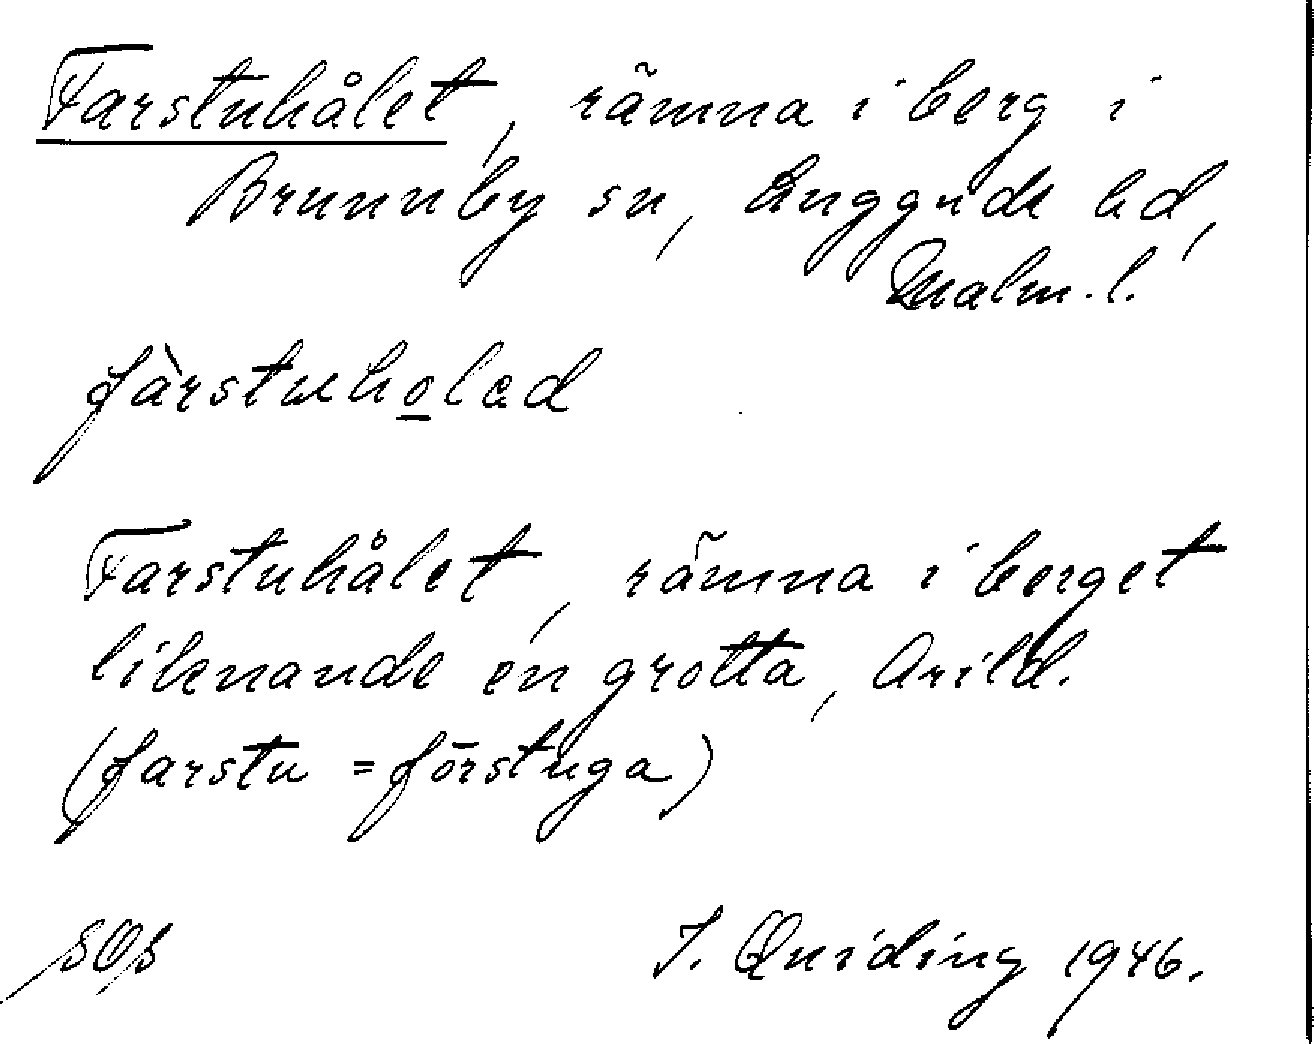 Farstuhålet, rämna i berg i
Brunnby sn, Luggude hd,
Malm. l.
fàrstuholəd
Farstuhålet, rämna i berget
liknande en grotta, Arild.
(farstu = förstuga)
I. Quiding 1946.